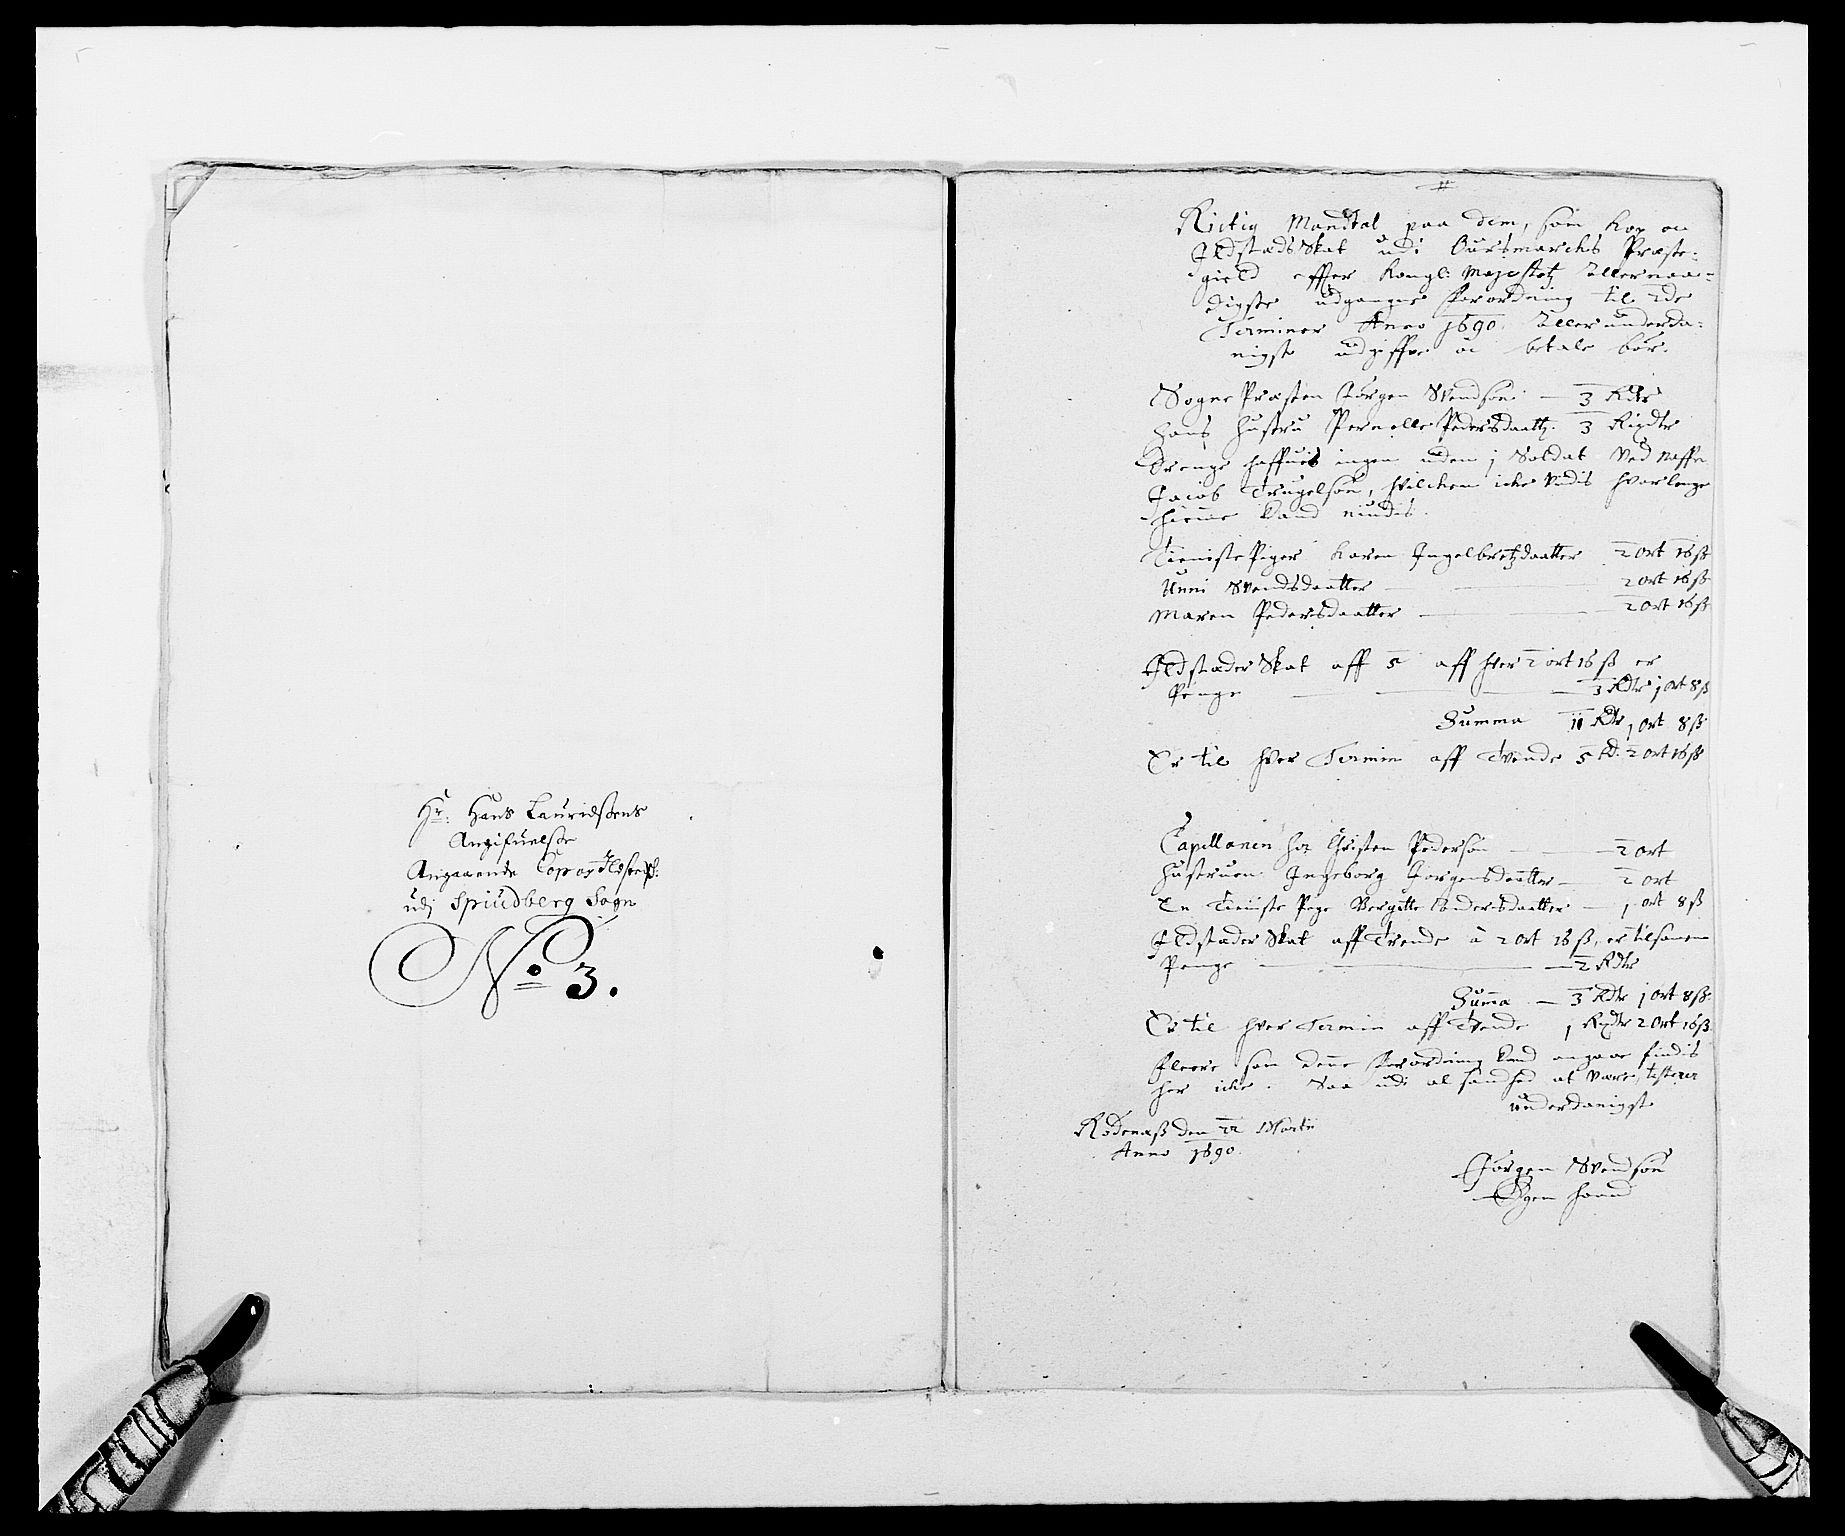 Hr: Hans Lauridsens
Angifuelse
Angaaende Cop og Ildsted sk:
udj Spiudberg Sogn
No 3.
Rictig Mandtal paa dem, som Kop oc
Ildstæds Skat udi Oursmarchs Præste-
gield effter Kongl: Majestetz Allernaa-
digste udgangne Forordning til 2de
Terminer Anno 1690. Allerunderda-
nigst udgiffve oc betale bør.
Sogne Præsten Jørgen Svendsøn — 3 Rdr
Hans Hustru Pernelle Pedersdaatt: 3 Rixdr
Drenge haffuis ingen uden j Soldat ved naffn
Jacob Trugelsøn, hvilchen iche vides hvor lenge
hiemme kand niudis.
Tienniste Piger Karen Ingelbretzdaatter 2 ort 16 ß
Unni Svendsdaatter — 2 ort 16 ß
Maren Pedersdaatter — 2 ort 16 ß
Ildstæder Skat aff 5 aff hver 2 ort 16 ß er
Penge — 3 Rdr 1 ort 8 ß
Summa 11 Rdr 1 ort 8 ß
Er til hver Termin aff Tvende 5 Rd. 2 ort 16 ß
Capellanen hr Christen Pedersøn — 2 ort
Hustruen Ingeborg Jørgensdaatter — 2 ort
En Tienniste Pige Bergitte Andersdaatter — 1 ort 8 ß
Ildstæder Skat aff Trende à 2 ort 16 ß, er tilsamen
Penge — 2 Rdr
Summa — 3 Rdr 1 ort 8 ß.
Er til hver Termin aff Tvende 1 Rixdr 2 Ort 16 ß.
Fleere som denne Forordning kand angaae findis
her iche. Saa udi al sandhed at være, testerer
underdanigst
Rødenæß den 22 Martii
Anno 1690.
Jørgen Svendsøn
Egen haand